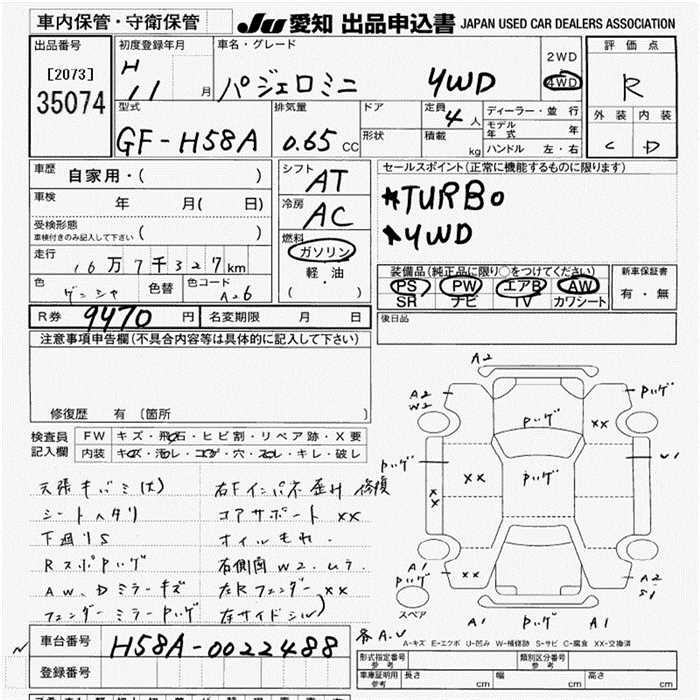 車内保管・守衛保管
JU 愛知 出品申込書 JAPAN USED CAR DEALERS ASSOCIATION
出品番号
[2073]
35074
初度登録年月
H 11 月
車名・グレード
パジェロミニ 4WD
2WD
4WD
評価点
R
外装 内装
C D
型式
GF-H58A
排気量
0.65 CC
ドア
形状
定員
4 人
積載
kg
ディーラー・並行
モデル年式 年
ハンドル 左・右
車歴 自家用・( )
車検 年 月( 日)
受検形態
車検付きのみ記入して下さい ( )
走行
16万7千327km
色 ゲンシャ 色替 色コード A26
シフト
AT
冷房
AC
燃料
ガソリン
軽・油
( ・ )
セールスポイント(正常に機能するものに限ります)
*TURBO
*4WD
装備品(純正品に限り○をつけてください)
PS PW エアB AW
SR ナビ TV カワシート
新車保証書
有・無
R券 9470 円 名変期限 月 日
後日品
注意事項申告欄(不具合内容等は具体的に記入して下さい)
修復歴 有 〔箇所 〕
検査員
記入欄
FW キズ・飛石・ヒビ割・リペア跡・X要
内装 キズ・汚レ・コゲ・穴・スレ・キレ・破レ
天張キバミ(大) 右Fインパネ歪み 修復
シートヘタリ コアサポート XX
下廻りS オイルもれ
Rスポハゲ 右側面W2、ムラ
AW、Dミラーキズ 左Rフェンダー XX
フェンダーミラーハゲ 左サイドシル)
A2
A2
W2
ハゲ
ハゲ
XX
ハゲ
XX
ハゲ
U1
XX
A1
ハゲ
XX
A2
S1
スペア
A1 ハゲ A1
各A、U
A-キズ E-エクボ U-凹み W-補修跡 S-サビ C-腐食 XX-交換済
車台番号 H58A-0022488
登録番号
型式指定番号
参考
類別区分番号
参考
車庫証明用
参考
長さ cm 幅 cm 高さ cm